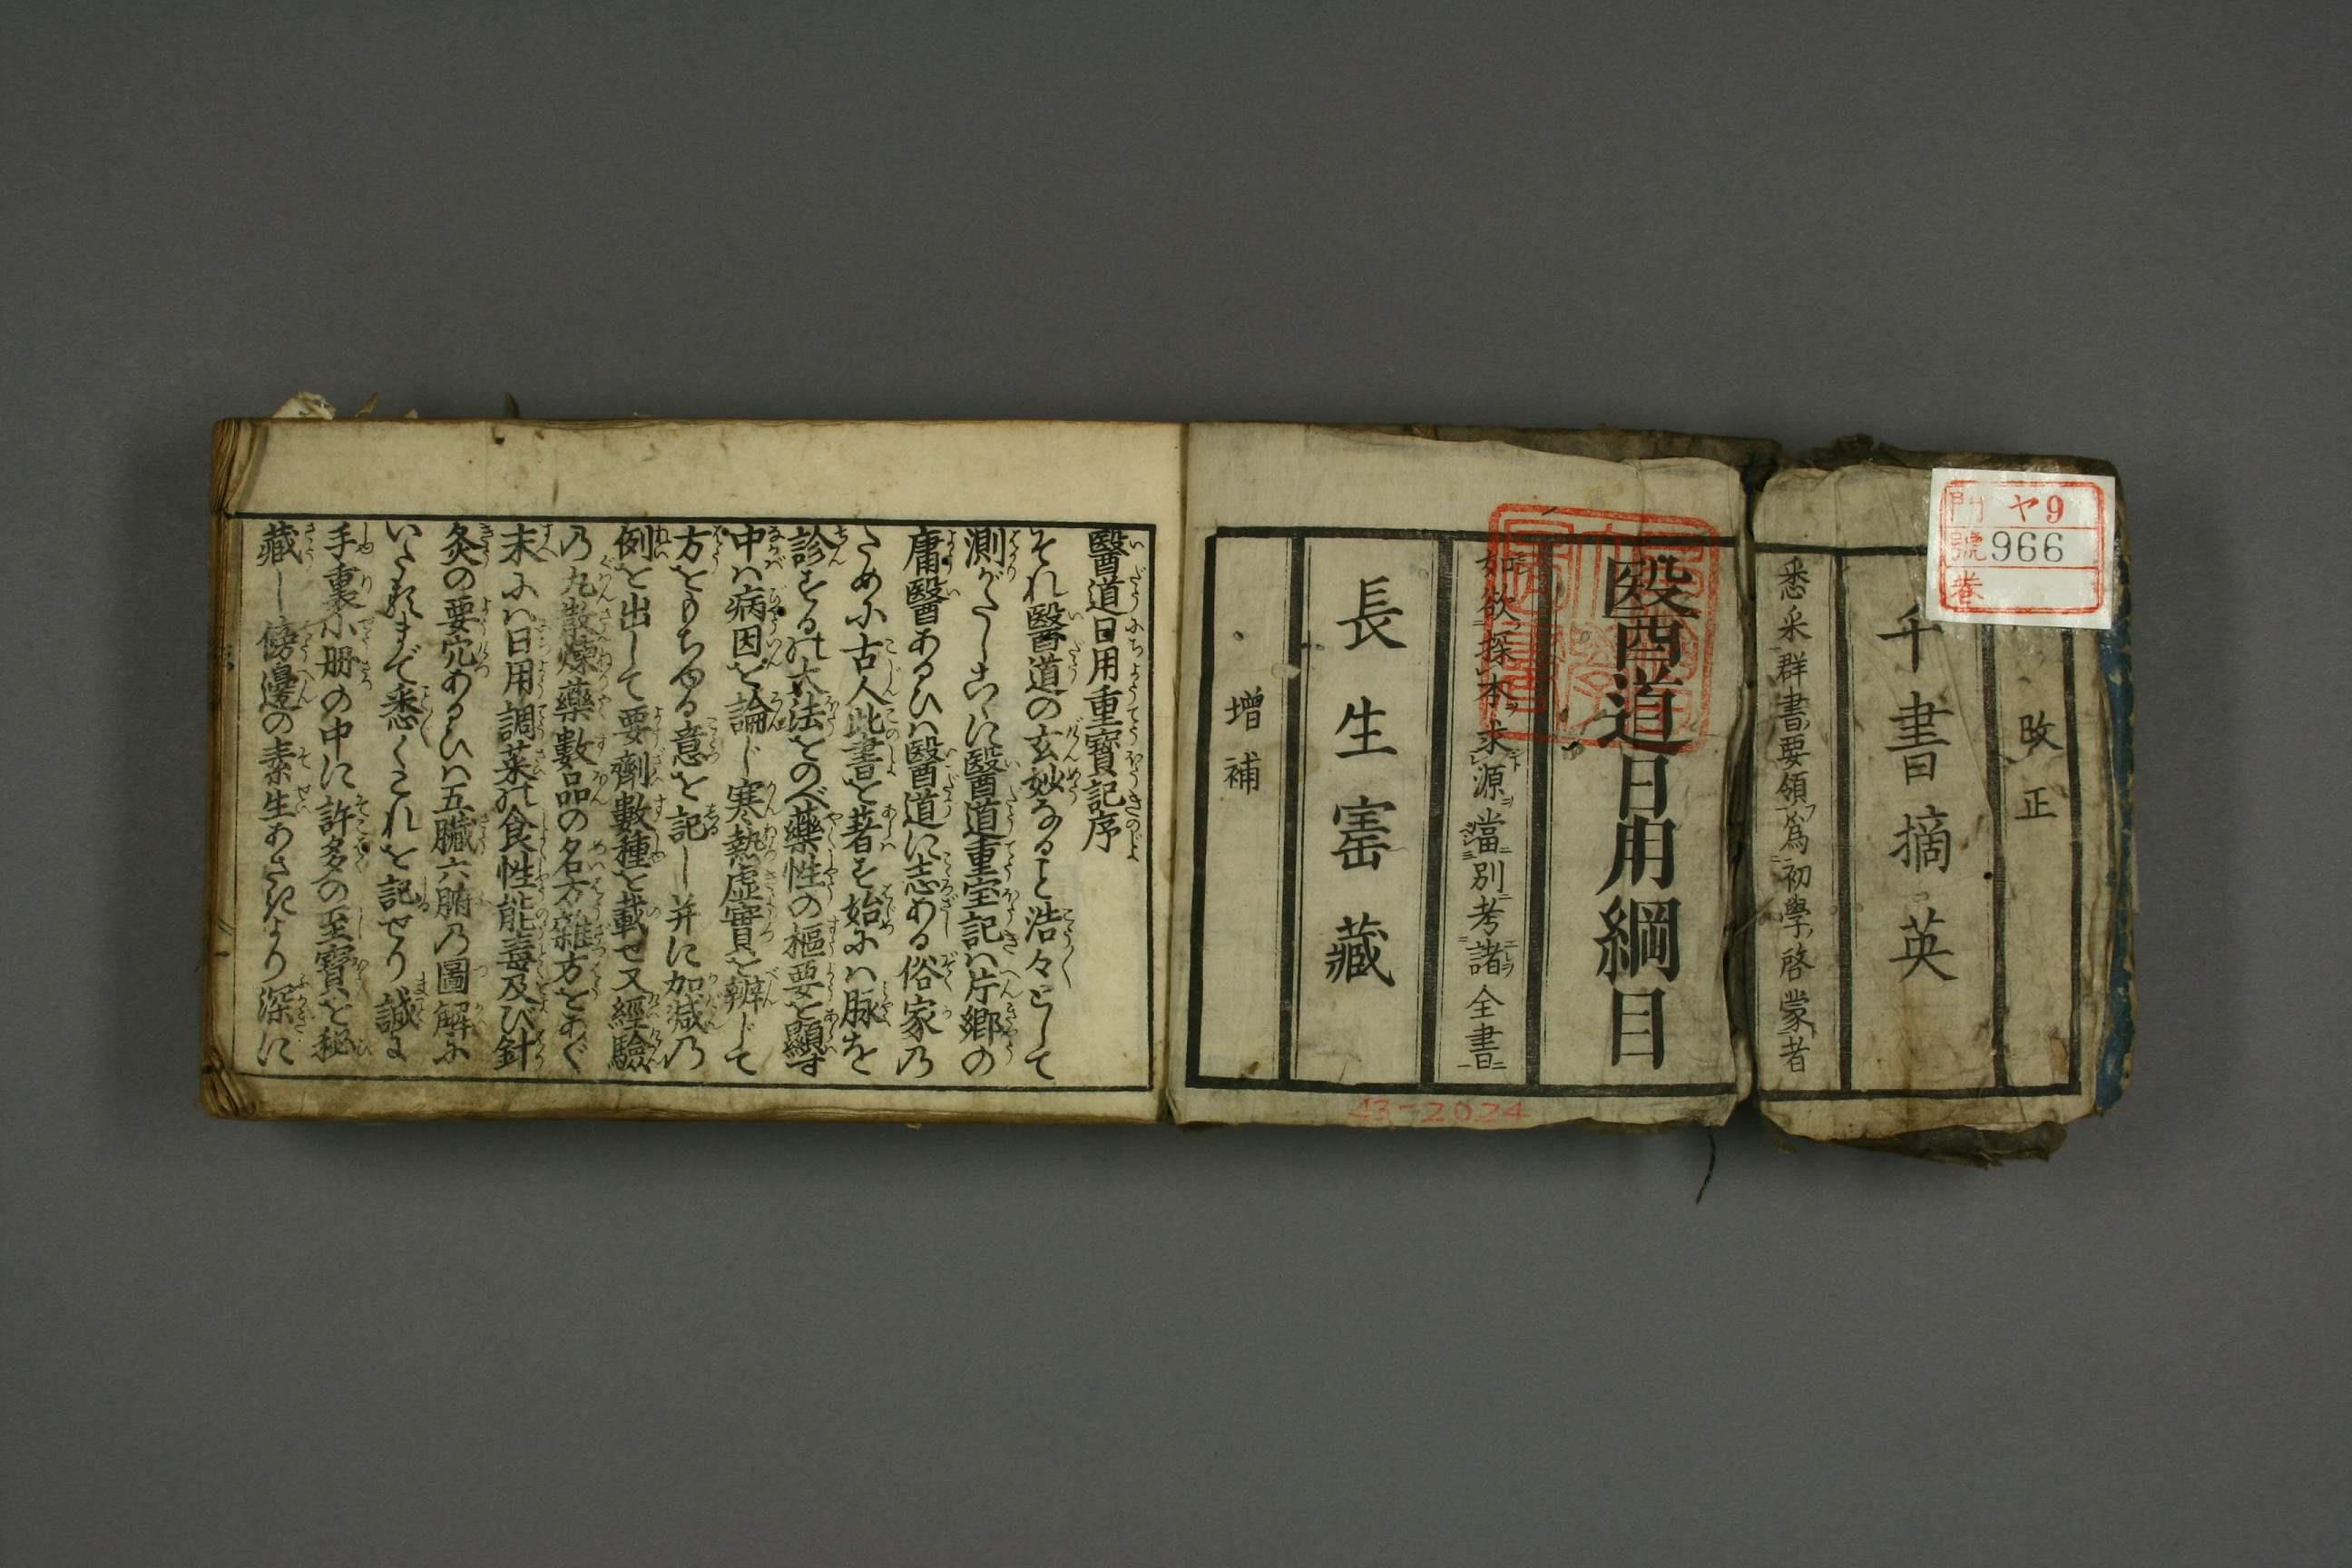 ヤ9
門
號 966
巻
改正
千書摘英
悉采群書要領為初學啓蒙者
醫道日用綱目
如欲探本求源當別考諸全書
長生室藏
增補
43-2024
醫道日用重寶記序
それ醫道の玄妙なること浩々として
測がたしこゝに醫道重宝記ハ片郷の
庸醫あるひハ醫道に志ある俗家乃
ために古人此書を著す始にハ脉を
診するの大法をのべ藥性の樞要を顯す
中ハ病因を論じ寒熱虚實を辨じて
方をもちゆる意を記し并に加減乃
例を出して要劑數種を載せ又經驗
乃丸散煉藥數品の名方雜方をあぐ
末にハ日用調菜の食性能毒及び針
灸の要穴あるひハ五臟六腑乃圖解に
いたるまで悉くこれを記せり誠に
手裏小冊の中に許多の至寶を秘
藏し傍邊の素生あさきより深に